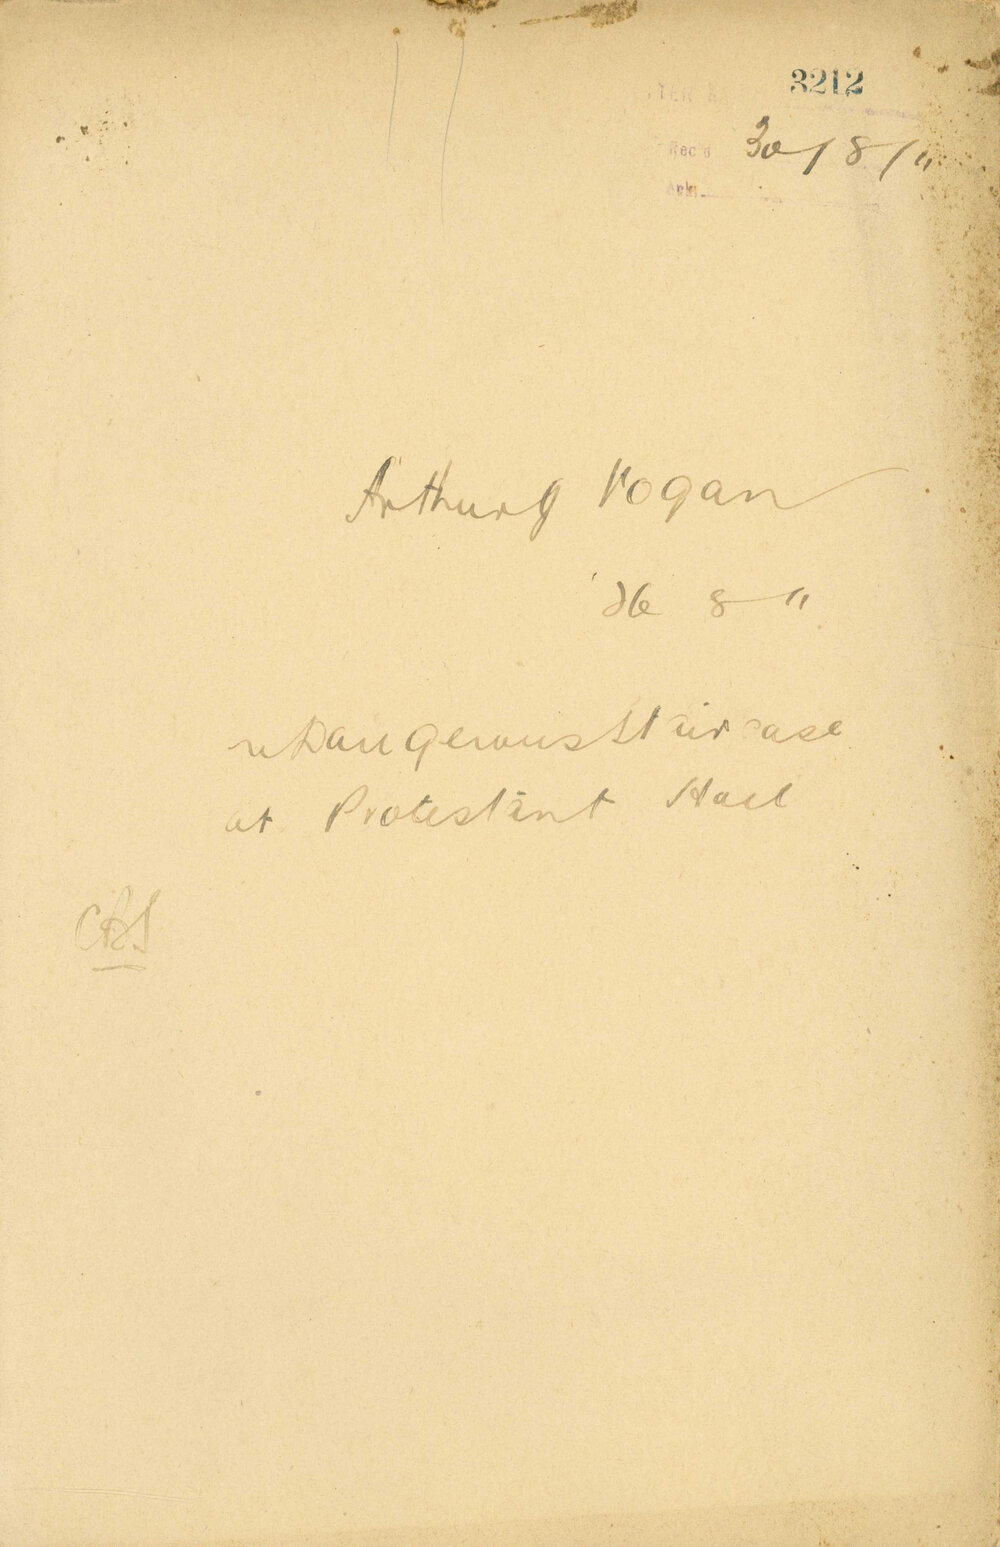 3212
Rec'd 30/8/11
Ack.
Arthur J Vogan
26 8 11
r Dangerous Staircase
at Protestant Hall